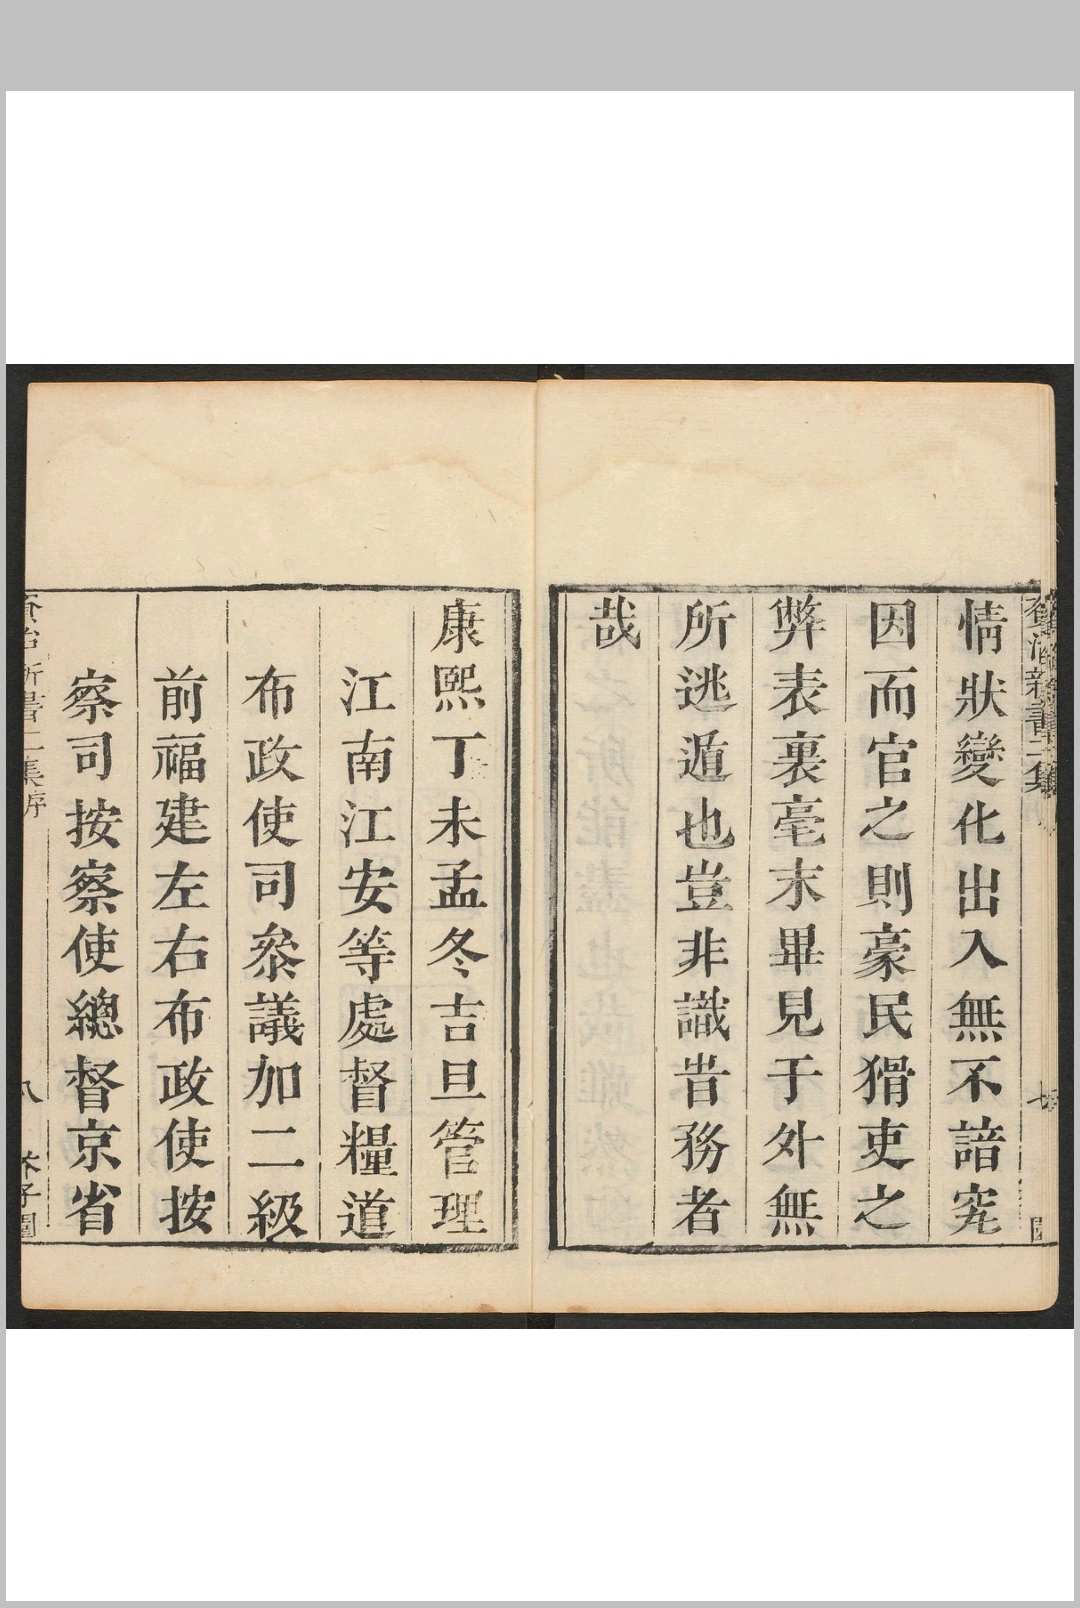 情狀變化出入無不諳究
因而官之則豪民猾吏之
弊表裏毫末畢見于外無
所逃遁也豈非識昔務者
哉
康熙丁未孟冬吉旦管理
江南江安等處督糧道
布政使司叅議加二級
前福建左右布政使按
察司按察使總督京省
資治新書二集序
八
芥子園